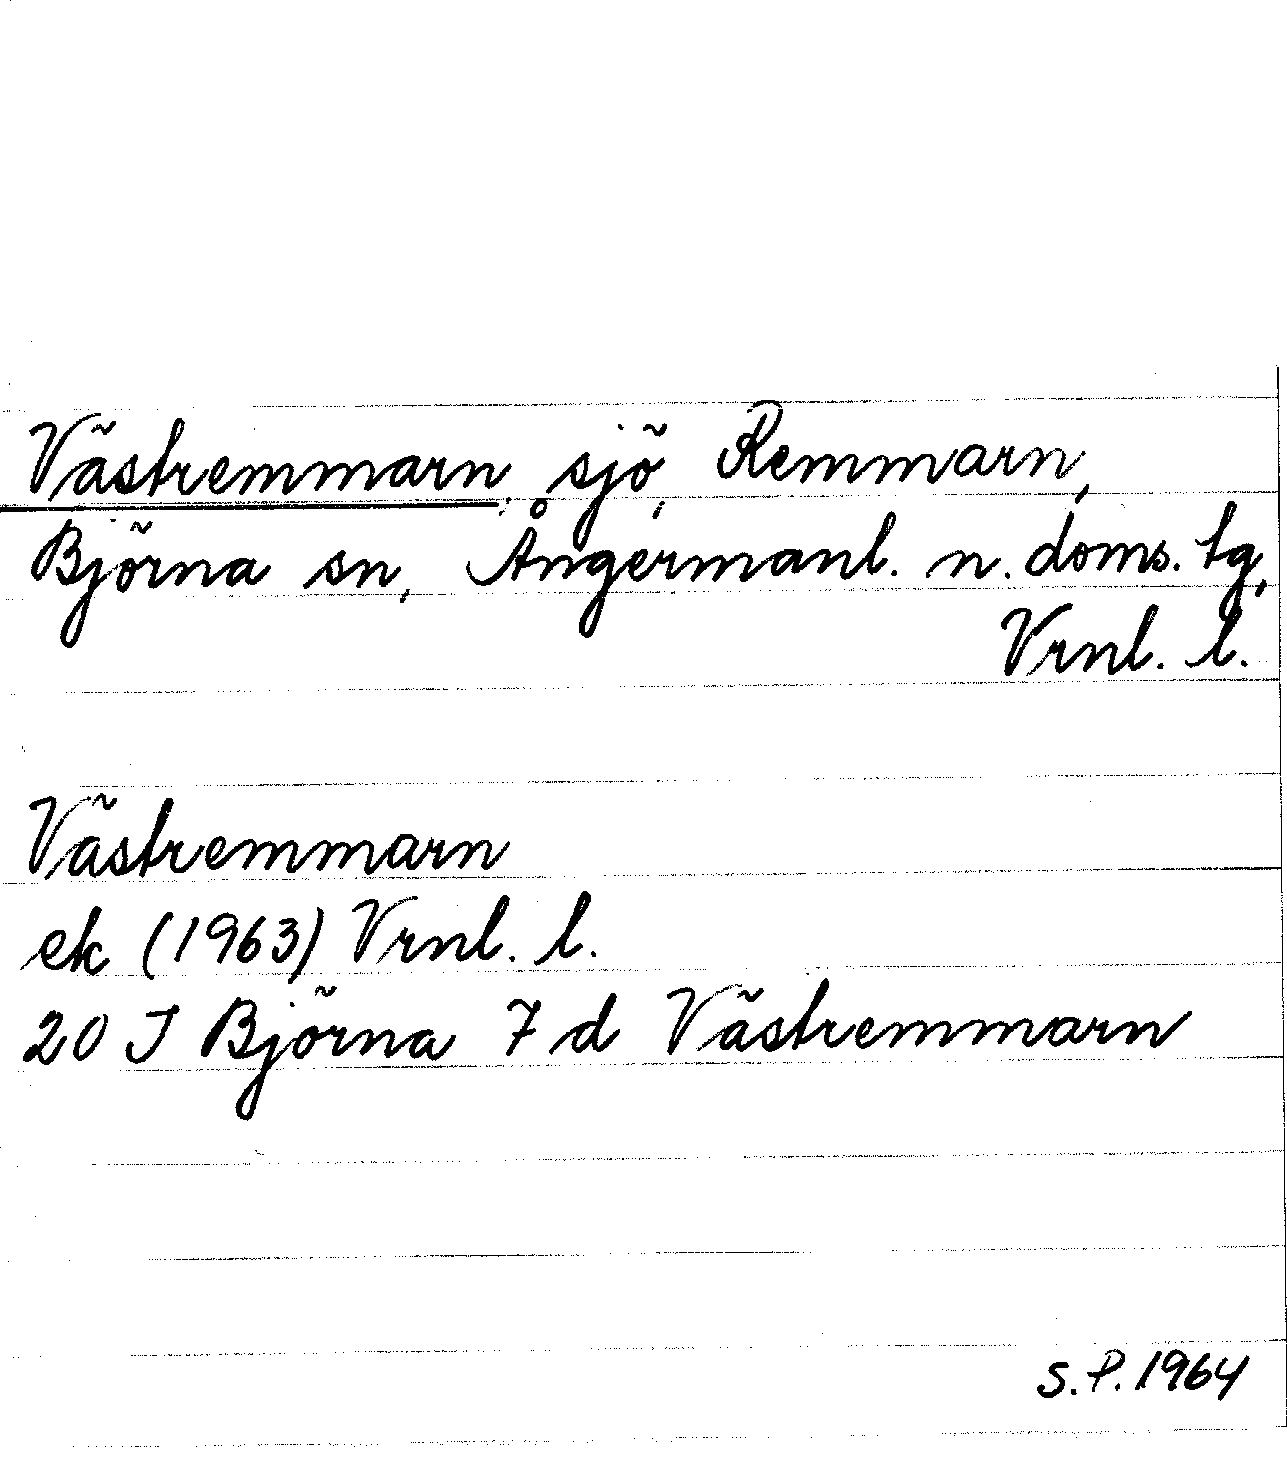 Västremmarn, sjö, Remmarn,
Björna sn, Ångermanl. n. doms. tg,
Vrnl. l.
Västremmarn
ek (1963) Vrnl. l.
20 J Björna 7 d Västremmarn
S.P. 1964